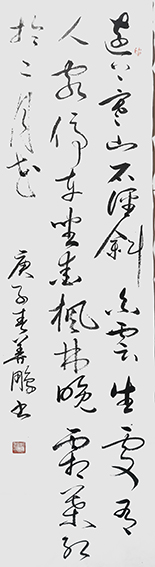 远上寒山石径斜白云生处有
人家停车坐爱枫林晚霜叶红
于二月花
庚子春善鹏书